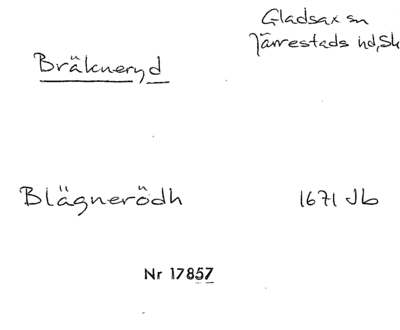 Gladsax sn
Järrestads hd, Sk
Bräkneryd
Blägnerödh 1671 Jb
Nr 17857